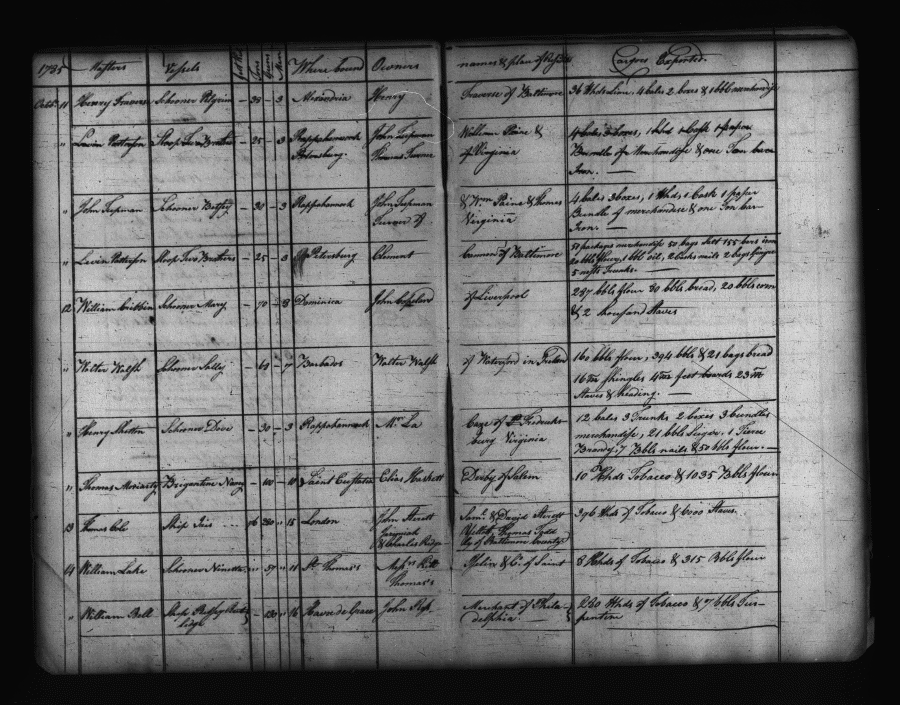 1785 Masters Vessels Guns Tons Men Where bound Owners names & place of Cargoes Exported
Octob. 11 Henry Travers Schooner Pilgrim — 35 — 3 Alexandria Henry Traverse of Baltimore 36 Hhds Rum, 4 bales 2 boxes & 1 bbl merchandize
" Levin Patterson Sloop Two Brothers — 25 — 3 Rappahannock John Tupman William Paine & 4 bales, 3 boxes, 1 hhd 1 Cask 1 paper
Petersburg Thomas Turner of Virginia Bundle of Merchandise & one Ton bar
Iron. —
" John Tupman Schooner Betsey — 30 — 3 Rappahannock John Tupman & Wm Paine & Thomas 4 bales 3 boxes, 1 Hhds, 1 Cask 1 paper
Virginia Bundle of merchandise & one Ton bar
Iron. —
" Levin Patterson Sloop Two Brothers — 25 — 3 Petersburg Clement of Baltimore 50 packages merchandise 50 bags Salt 155 bars iron
20 bbls flour, 1 bbl oil, 2 Casks nails 2 bags ginger
5 Trunks. —
12 William Schooner Mary — 70 — 8 Dominica John Copeland of Liverpool 287 bbls flour 30 bbls bread, 20 bbls corn
& 2 thousand Staves
" Walter Walsh Schooner Salley — 61 — 7 Barbados Walter Walsh of Waterford in 160 bbls flour, 394 bbls & 21 bags bread
16 M Shingles 4 M feet boards 23 M
Staves & heading. —
" Henry Skelton Schooner Dove — 30 — 3 Rappahannock Mr. La Caze of Fredericks- 12 bales 3 Trunks 2 boxes 3 bundles
burg Virginia merchandise, 21 bbls Liquor. 1 Tierce
Brandy, 7 Bbls nails & 50 bbls flour. —
" Thomas Moriarty Brigantine Nancy — 100 — 10 Saint Eustatia Elias Haskett Derby of Salem 10 Hhds Tobacco & 1035 Bbls flour
13 Thomas Cole Ship Iris 16 280 " 15 London John Sterett Saml. & David Sterett 396 Hhds of Tobacco & 6000 Staves.
Jeremiah Thomas Todd
& Charles Ridgely of Baltimore County
14 William Lake Schooner 57 " 11 St. Thomas's & Co. of Saint 8 Hhds of Tobacco & 315 Bbls flour
Thomas's
" William Bell Ship — 16 Havre de Grace John Ross Merchant of Phila- Hhds of Tobacco & 7 bbls Tur-
delphia. — pentine